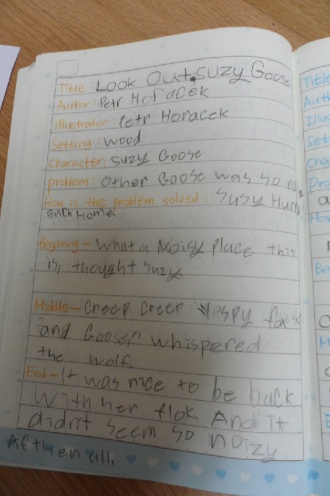 Title: Look Out, Suzy Goose
Author: Petr Horacek
illustrator: Petr Horacek
Setting: wood
Character: Suzy Goose
problem: Other Goose was so
How is the problem solved: Suzy
Back Home.
Beginning- What a Noisy place this
is, thought Suzy.
Middle- Creep Creep
and Gooses" whispered
the wolf.
End- It was nice to be back
with her flok And it
didn't seem so noizy
Afther all.
Title
Auth